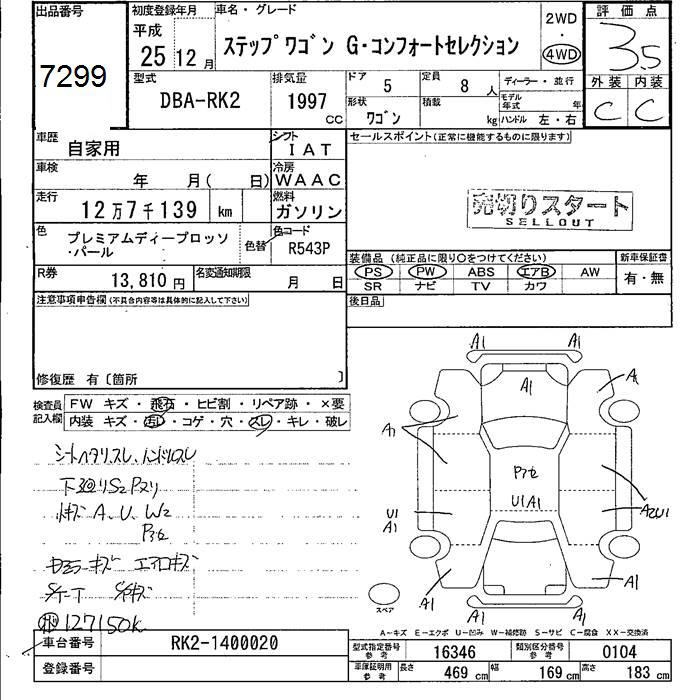 出品番号
7299
初度登録年月
平成
25 12月
車名・グレード
ステップワゴン G・コンフォートセレクション
2WD
・
4WD
評価点
3.5
外装 内装
C C
型式
DBA-RK2
排気量
1997
cc
ドア
5
定員
8人
ディーラー・並行
形状
ワゴン
積載
kg
モデル年式 年
ハンドル 左・右
車歴
自家用
シフト
IAT
車検
年 月( 日)
冷房
WAAC
走行
12万7千139 km
燃料
ガソリン
色
プレミアムディープロッソ
・パール
色替
色コード
R543P
R券
13,810円
名変通知期限
月 日
セールスポイント(正常に機能するものに限ります)
売切りスタート
SELLOUT
装備品 (純正品に限り○をつけてください)
PS PW ABS エアB AW
SR ナビ TV カワ
新車保証書
有・無
後日品
注意事項申告欄(不具合内容等は具体的に記入して下さい)
修復歴 有〔箇所 〕
検査員
記入欄
FW キズ・飛石・ヒビ割・リペア跡・×要
内装 キズ・汚レ・コゲ・穴・スレ・キレ・破レ
シートヘタリスレ、ハンドルスレ
下廻りS2 Pスリ
A、U、W2
エアロキズ
127150K
A1 A1
A1
A1
A1
U1A1
U1
A1
A2U1
A1
A1
A1 A1
スペア
A−キズ E−エクボ U−凹み W−補修跡 S−サビ C−腐食 XX−交換済
車台番号
RK2-1400020
登録番号
型式指定番号
参考
16346
類別区分番号
参考
0104
車庫証明用
参考
長さ
469 cm
幅
169 cm
高さ
183 cm